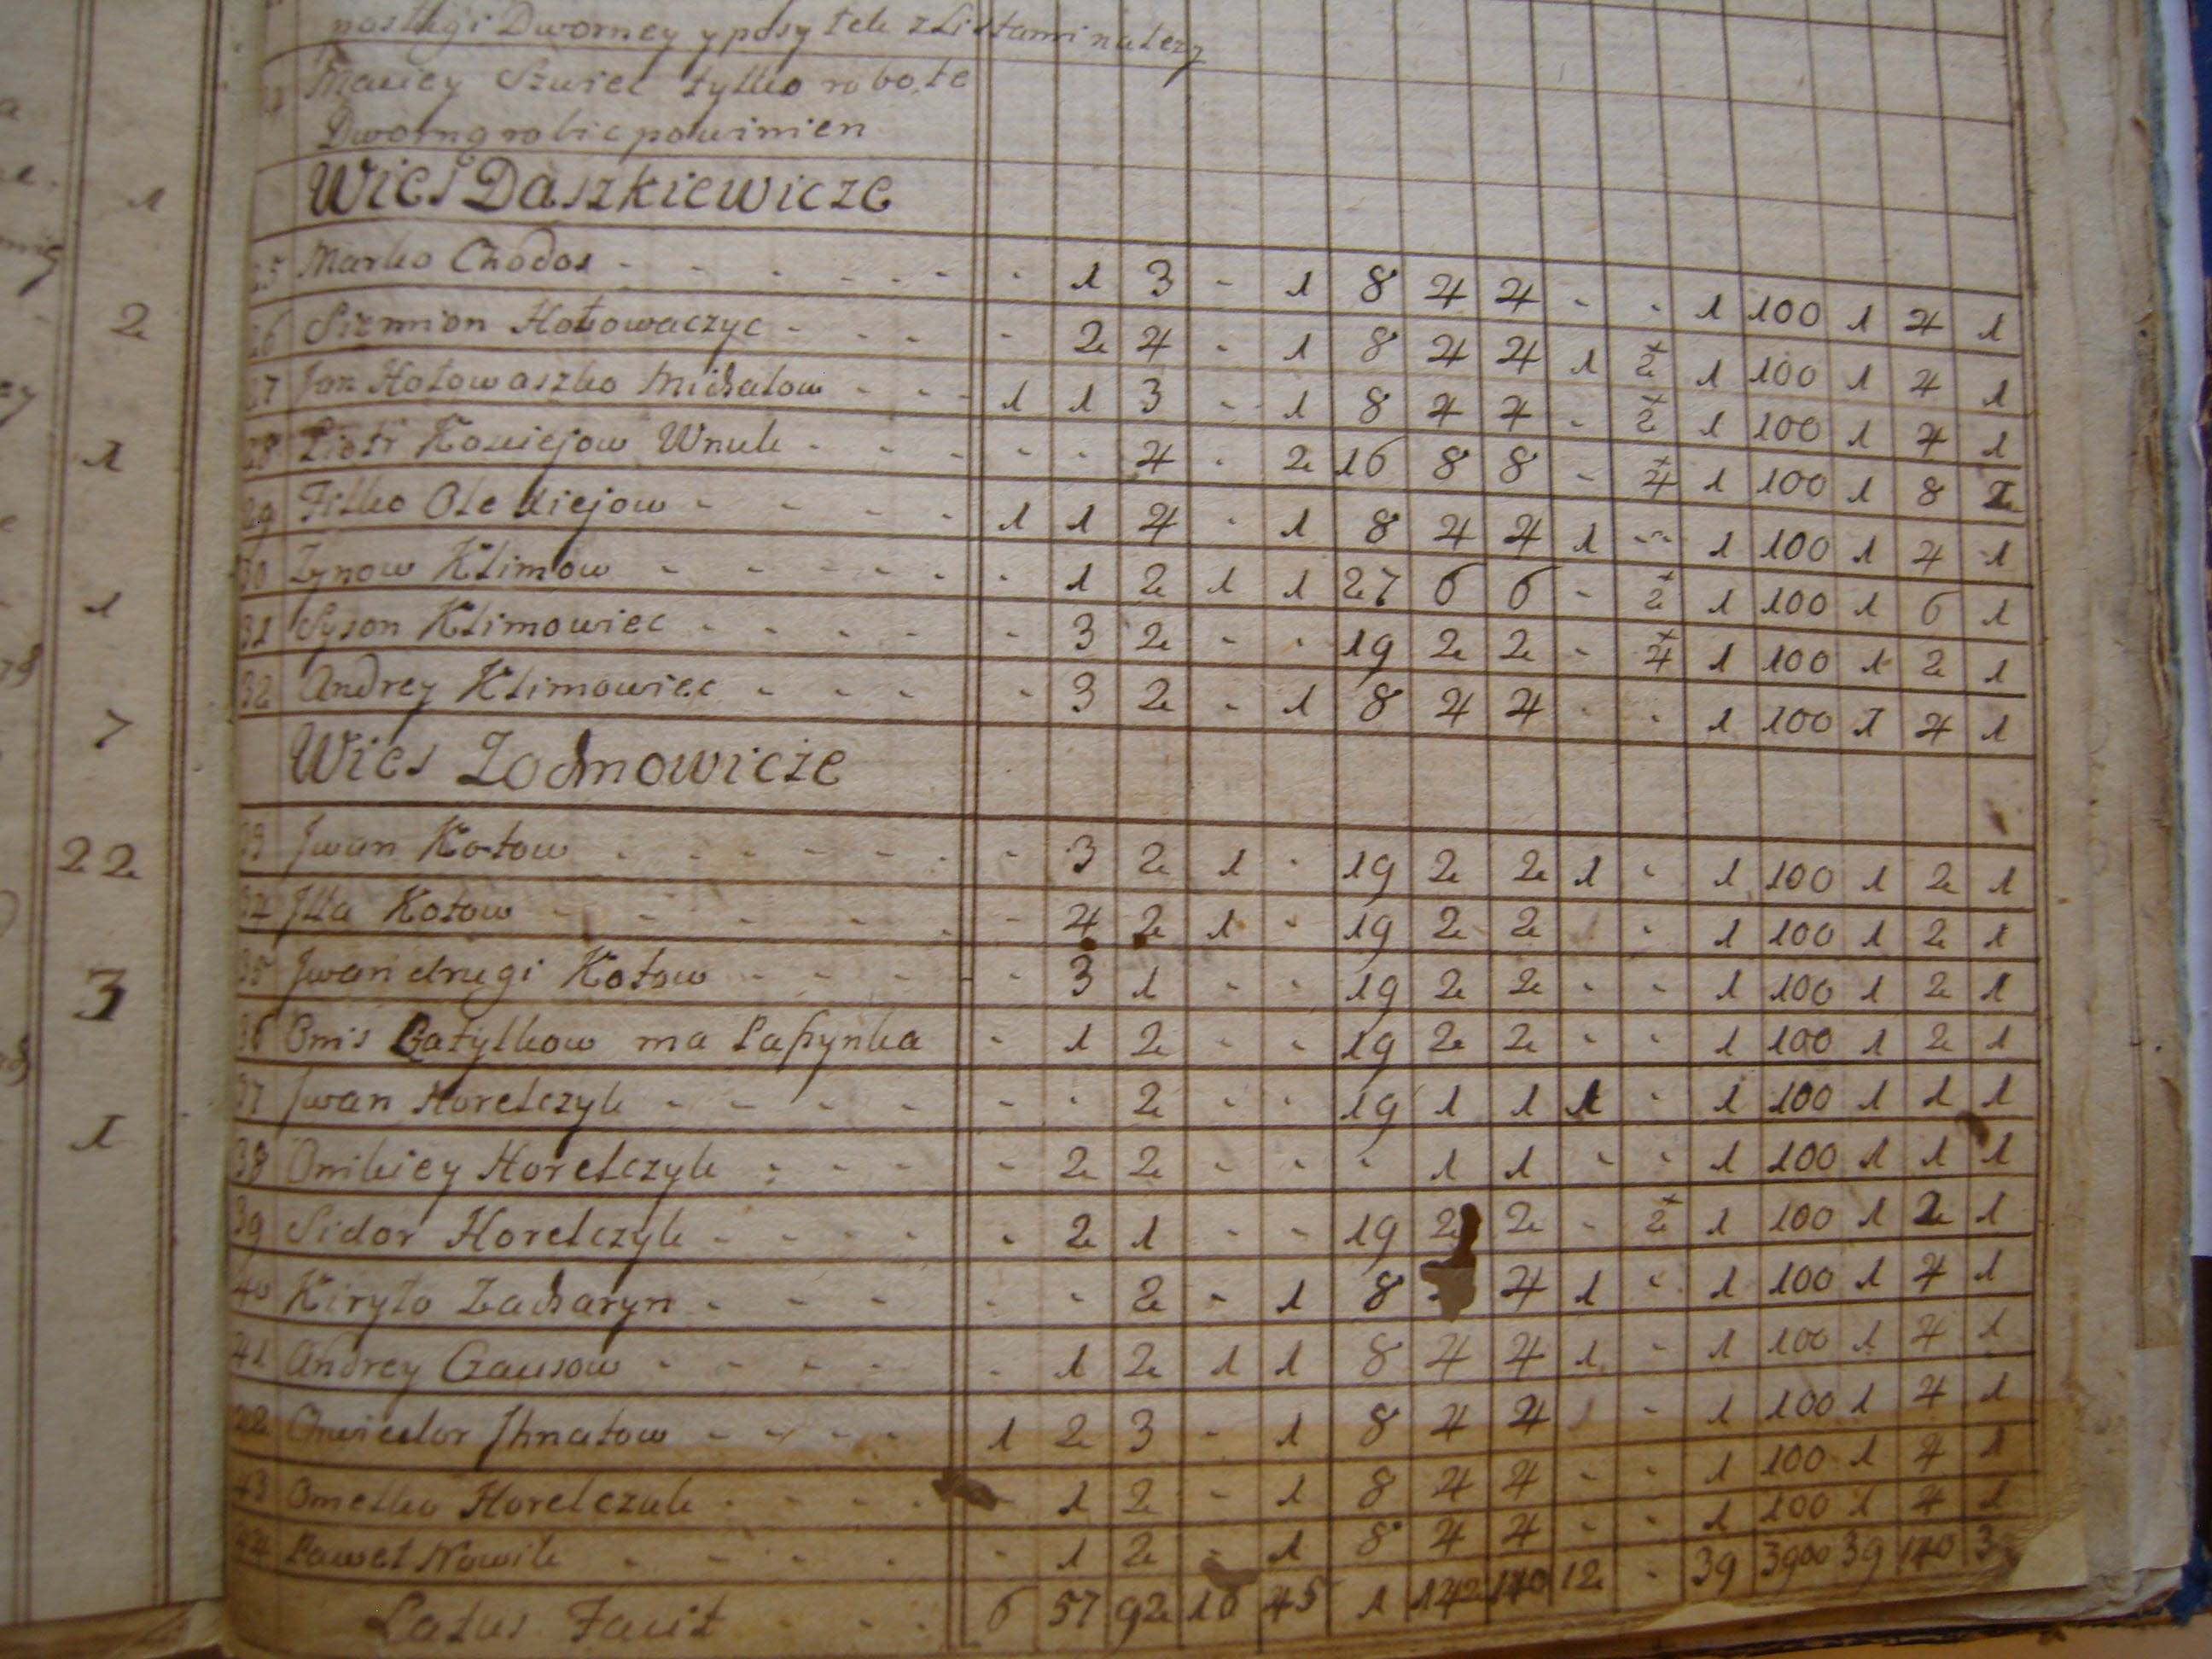 posługi Dworney y posyłek z Listami należy
Maciey Szwiec tylko robote
Dworną robic powinien
Wies Daszkiewicze
25 Marko Chodos - - 1 3 - 1 8 4 4 - - 1 100 1 4 1
26 Siemion Hołowaczyc - - 2 4 - 1 8 4 4 1 2 1 100 1 4 1
27 Jan Hołowaszko Michałow - 1 1 3 - 1 8 4 4 - 2 1 100 1 4 1
28 Piotr Wnuk - - - 4 - 2 16 8 8 - 4 1 100 1 8 2
29 Filko Olexiejow - 1 1 4 - 1 8 4 4 1 - 1 100 1 4 1
30 Zynow Klimow - - 1 2 1 1 27 6 6 - 2 1 100 1 6 1
31 Syson Klimowiec - - 3 2 - - 19 2 2 - 4 1 100 1 2 1
32 Andrey Klimowiec - - 3 2 - 1 8 4 4 - - 1 100 1 4 1
Wies Zochnowicze
33 Jwan Kotow - - 3 2 1 - 19 2 2 1 - 1 100 1 2 1
34 Jlla Kotow - - 4 2 1 - 19 2 2 - 1 100 1 2 1
35 Jwan drugi Kotow - - 3 1 - - 19 2 2 - - 1 100 1 2 1
36 Onis ma - 1 2 - - 19 2 2 - - 1 100 1 2 1
37 Jwan Horelczyk - - - 2 - - 19 1 1 1 - 1 100 1 1 1
38 Onikiey Horelczyk - - 2 2 - - - 1 1 - - 1 100 1 1 1
39 Sidor Horelczyk - - 2 1 - - 19 2 2 - 2 1 100 1 2 1
40 Kiryło Zacharyn - - - 2 - 1 8 4 1 - 1 100 1 4 1
41 Andrey - - 1 2 1 1 8 4 4 1 - 1 100 1 4 1
Jhnatow - 1 2 3 - 1 8 4 4 - 1 100 1 4 1
43 Omelko Horelczuk - - 1 2 - 1 8 4 4 - - 1 100 1 4 1
44 Paweł Nowik - - 1 2 - 1 8 4 4 - - 1 100 1 4 1
Latus Facit - 6 57 92 45 1 142 12 - 39 3900 39
1
2
1
1
7
22
3
1